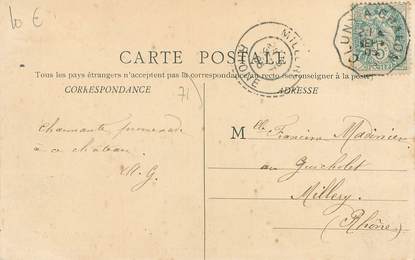 10 €
CARTE POSTALE
Tous les pays étrangers n'acceptent pas la correspondance au recto (se renseigner à la poste)
CORRESPONDANCE
ADRESSE
71
charmante promenade
à ce château.
M. G.
Mlle Francine Madinier
au Guicholet
Millery
(Rhône)
MILLERY
RHONE
CLUNY A CHALON